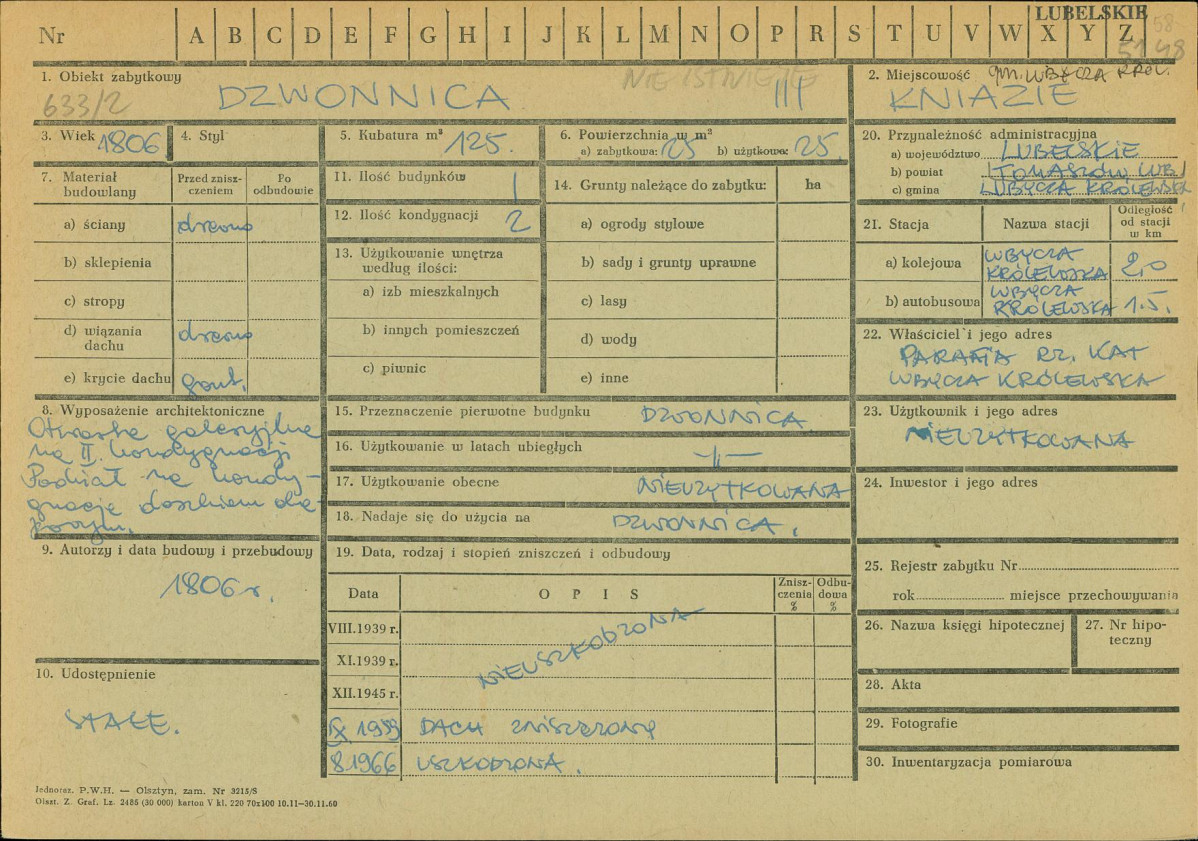 LUBELSKIE
Nr A B C D E F G H I J K L M N O P R S T U V W X Y Z
58
5148
1. Obiekt zabytkowy
NIE ISTNIEJE
633/2 DZWONNICA
2. Miejscowość gm. LUBYCZA KRÓL.
KNIAZIE
3. Wiek 1806
4. Styl
5. Kubatura m³ 125.
6. Powierzchnia w m²
a) zabytkowa: 25 b) użytkowa: 25.
7. Materiał budowlany
Przed zniszczeniem
Po odbudowie
a) ściany drewno
b) sklepienia
c) stropy
d) wiązania dachu drewno
e) krycie dachu gont.
8. Wyposażenie architektoniczne
Otwarte galeryjne
na II kondygnacji
Podział na kondy-
gnacje daszkiem oka-
powym.
9. Autorzy i data budowy i przebudowy
1806 r.
10. Udostępnienie
STAŁE.
11. Ilość budynków 1
12. Ilość kondygnacji 2
13. Użytkowanie wnętrza
według ilości:
a) izb mieszkalnych
b) innych pomieszczeń
c) piwnic
14. Grunty należące do zabytku: ha
a) ogrody stylowe
b) sady i grunty uprawne
c) lasy
d) wody
e) inne
15. Przeznaczenie pierwotne budynku DZWONNICA
16. Użytkowanie w latach ubiegłych -"-
17. Użytkowanie obecne NIEUŻYTKOWANA
18. Nadaje się do użycia na DZWONNICA.
19. Data, rodzaj i stopień zniszczeń i odbudowy
Data OPIS Zniszczenia % Odbudowa %
VIII.1939 r.
XI.1939 r. NIEUSZKODZONA
XII.1945 r.
IX 1959 DACH ZNISZCZONY
8.1966 USZKODZONA.
20. Przynależność administracyjna
a) województwo LUBELSKIE
b) powiat TOMASZÓW LUB.
c) gmina LUBYCZA KRÓLEWSKA
21. Stacja Nazwa stacji Odległość od stacji w km
a) kolejowa LUBYCZA KRÓLEWSKA 2,0
b) autobusowa LUBYCZA KRÓLEWSKA 1.5.
22. Właściciel i jego adres
PARAFIA RZ. KAT
LUBYCZA KRÓLEWSKA
23. Użytkownik i jego adres
NIEUŻYTKOWANA
24. Inwestor i jego adres
25. Rejestr zabytku Nr
rok miejsce przechowywania
26. Nazwa księgi hipotecznej
27. Nr hipoteczny
28. Akta
29. Fotografie
30. Inwentaryzacja pomiarowa
Jednoraz. P.W.H. — Olsztyn, zam. Nr 3215/S
Olszt. Z. Graf. Lz. 2485 (30 000) karton V kl. 220 70x100 10.11—30.11.60